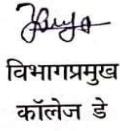 विभागप्रमुख
कॉलेज डे